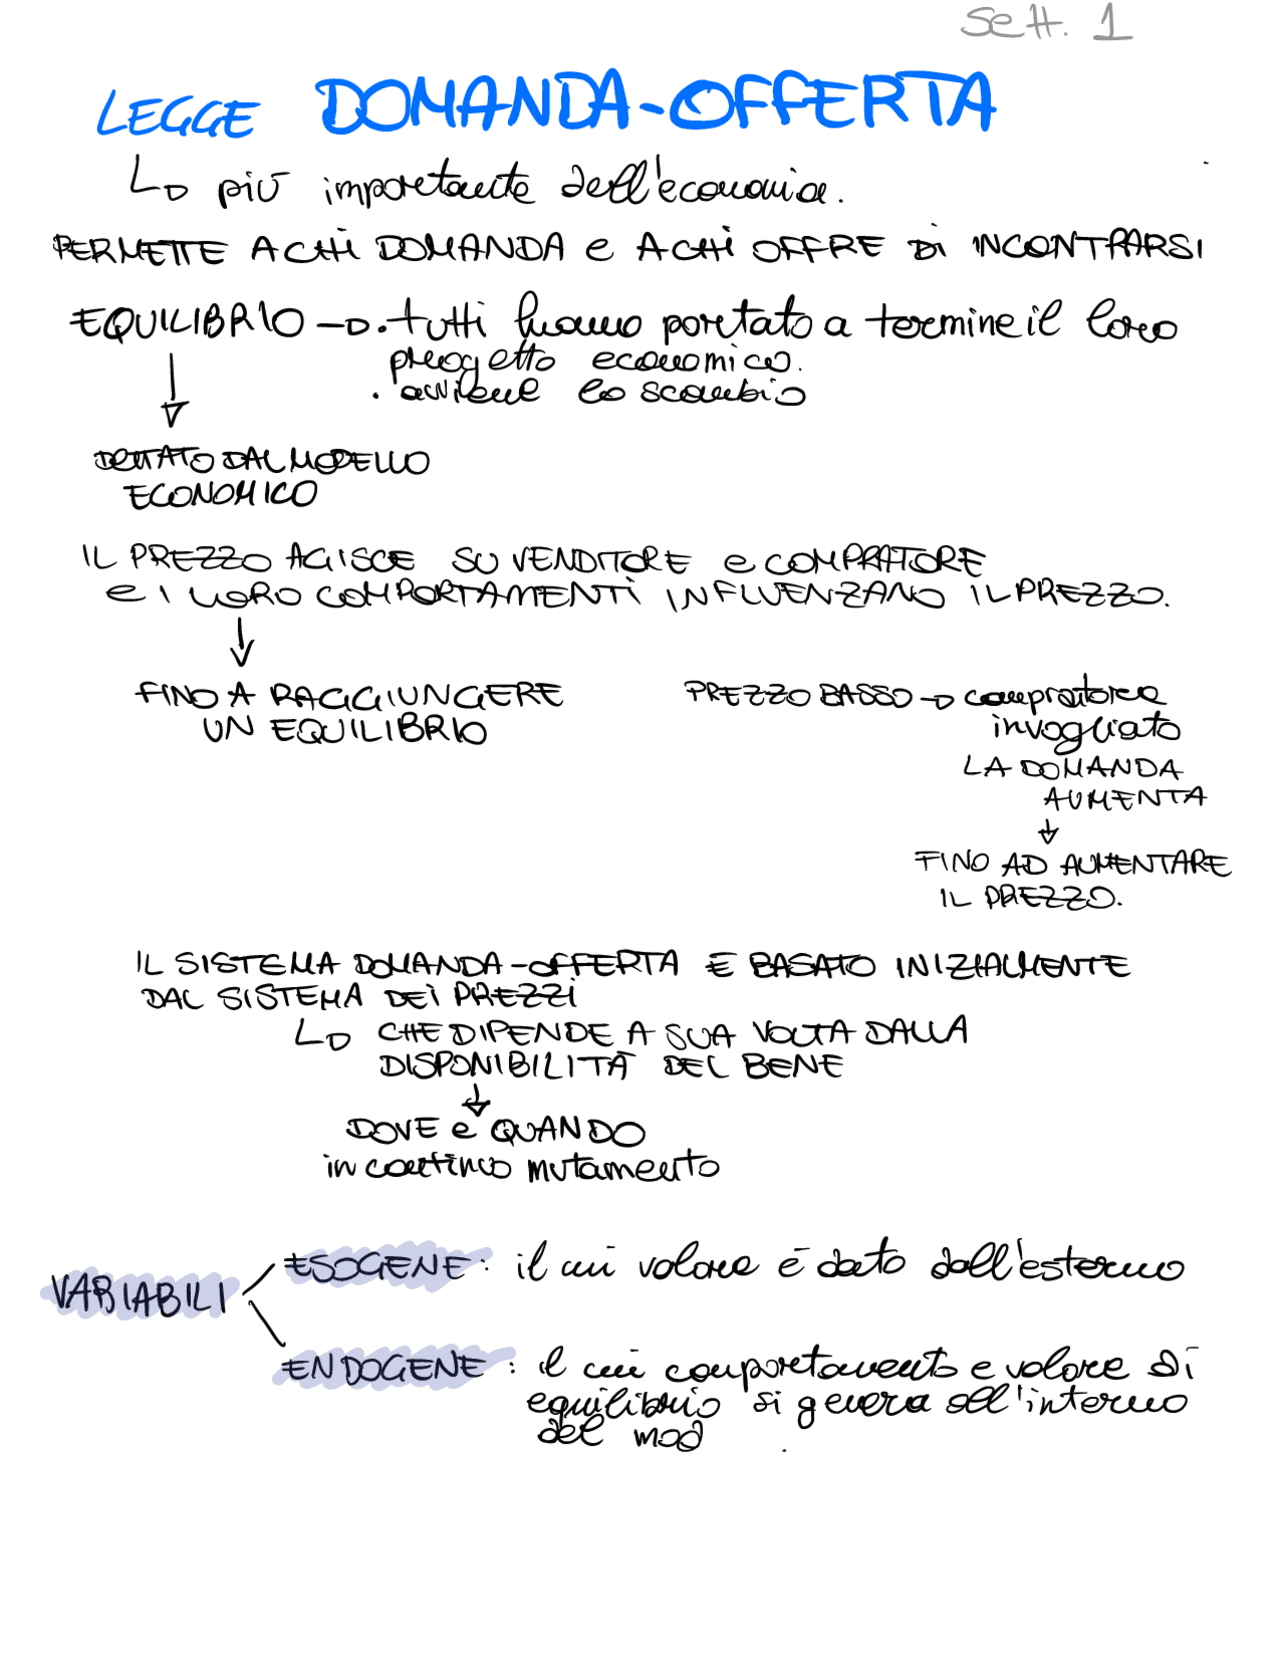 Sett. 1
LEGGE DOMANDA-OFFERTA
più importante dell'economia.
PERMETTE A CHi DOMANDA e A CHi OFFRE Di INCONTRARSI
EQUILIBRIO → . tutti hanno portato a termine il loro
progetto economico.
. avviene lo scambio
DETTATO DAL MODELLO
ECONOMICO
IL PREZZO AGISCE SU VENDITORE e COMPRATORE
e I LORO COMPORTAMENTI INFLUENZANO IL PREZZO.
FINO A RAGGIUNGERE
UN EQUILIBRIO
PREZZO BASSO → compratore
invogliato
LA DOMANDA
AUMENTA
FINO AD AUMENTARE
IL PREZZO.
IL SISTEMA DOMANDA-OFFERTA È BASATO INIZIALMENTE
DAL SISTEMA DEI PREZZI
CHE DIPENDE A SUA VOLTA DALLA
DISPONIBILITÀ DEL BENE
DOVE e QUANDO
in continuo mutamento
VARIABILI
ESOGENE: il cui valore è dato dall'esterno
ENDOGENE: il cui comportamento e valore di
equilibrio si genera all'interno
del mod